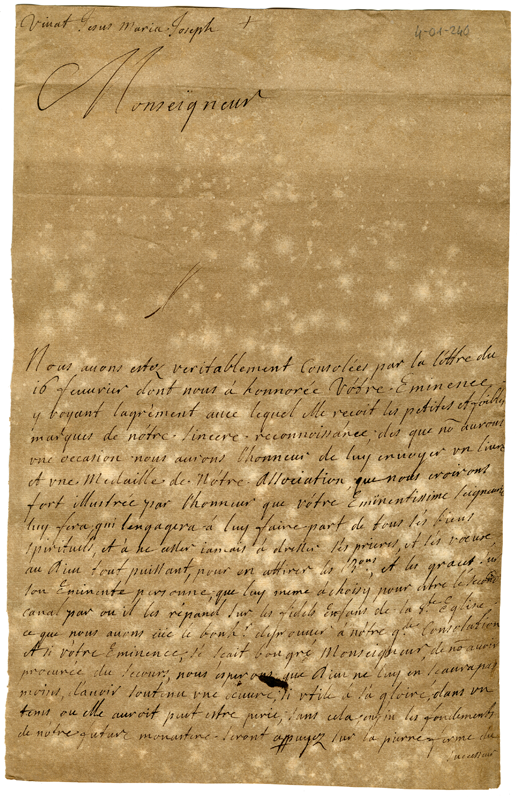 Vivat Jesus Maria Joseph +
4-01-240
Monseigneur
Nous auons estez veritablement Consolées par la lettre du
16 feuurier dont nous à honnorée Vôtre Eminence,
y voyant lagrément auec lequel Elle recoit les petites et foibles
marques de nôtre sincere reconnoissance; des que no' aurons
vne occasion nous aurons l'honneur de luy envoyer vn liure
et vne Medaille de Notre Association que nous croirons
fort illustrée par l'honneur que vôtre Eminentissime Seigneurie
luy fera, qui l'engagera à luy faire part de tous ses biens
spirituels, et à ne cesser iamais à dresser ses prieres, et ses voeux
au Dieu tout puissant, pour en attirer ses dons, et les graces sur
son Eminente personne, que luy meme à choisy pour estre le second
canal par ou il les répand sur les fidels Enfans de la Ste Eglise
ce que nous auons eüe le bonh! desprouuer à nôtre gde Consolation
Et si vôtre Eminence, se scait bon gre Monseigneur, de no' auoir
procuré du secours, nous esperons que Dieu ne luy en scaura pas
moins, d'auoir soutenu vne oeuure, si vtile à sa gloire, dans vn
tems ou Elle auroit peut estre perie, sans cela enfin les fondements
de notre future monastere seront appuyez sur la pierre ferme du
successeur